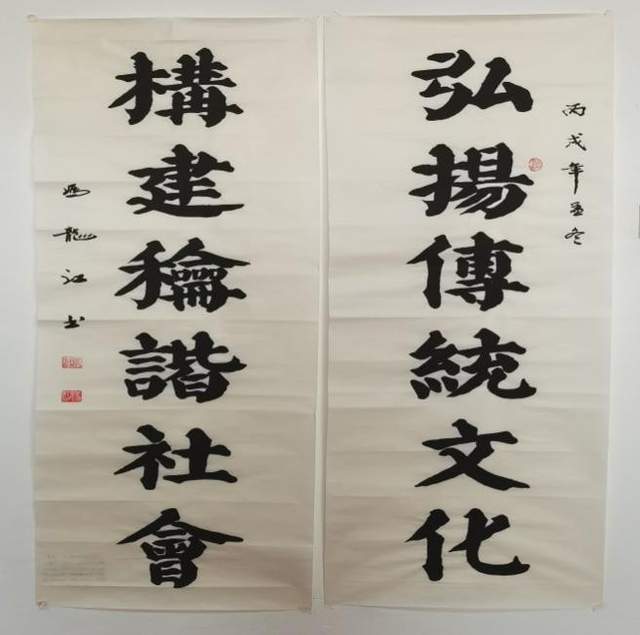 丙戌年孟冬
弘揚傳統文化
構建龢諧社會
馮龍江书